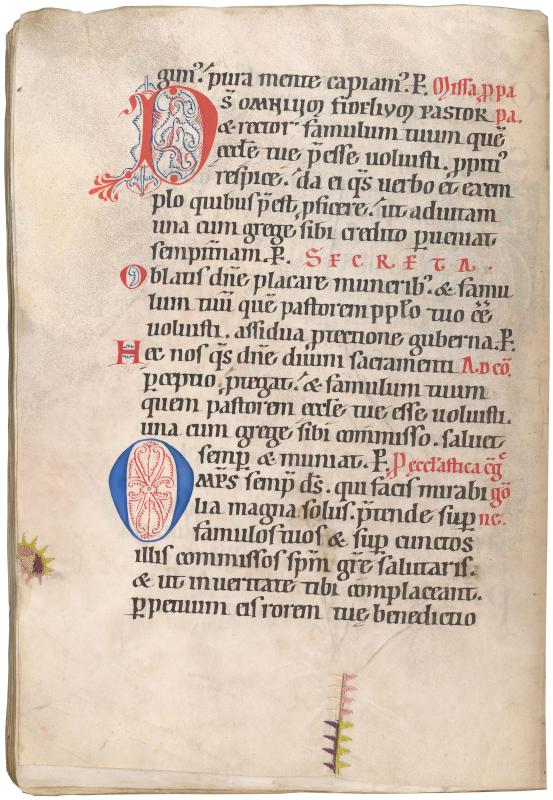 gim⁹. pura mente capiam⁹. P. Missa p pa
DS̄ OMNIUM FIDELIUM PASTOR pa.
& rector famulum tuum quē
eccl̄e tue p̄esse uoluisti. ppiti⁹
respice. da ei q̄s uerbo et exem
plo quibus p̄est, pficere. ut ad uitam
una cum grege sibi credito pueniat
sempit̄nam. P. SECRETA.
Oblatis dn̄e placare munerib⁹. & famu
lum tuū quē pastorem pplo tuo ēē
uoluisti. assidua ptectione guberna. P.
Hec nos q̄s dn̄e diuini sacramenti Ad cō.
pceptio ptegat. & famulum tuum
quem pastorem eccl̄e tue esse uoluisti.
una cum grege sibi commisso. saluet
semp & muniat. P. P eccl̄astica cōḡ
OMP̄S semp̄ ds̄. qui facis mirabi gō
lia magna solus. p̄tende sup ne.
famulos tuos & sup cunctos
illis commissos sp̄m gr̄e salutaris.
& ut in ueritate tibi complaceant.
ppetuum eis rorem tue benedictio